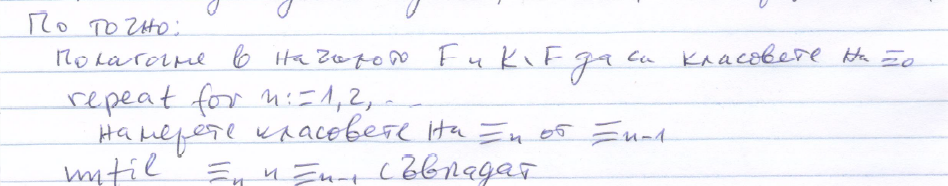 По точно:
Полагаме в началото F и K\F да са класовете на ≡₀
repeat for n:=1,2,...
намерете класовете на ≡ₙ от ≡ₙ₋₁
until ≡ₙ и ≡ₙ₋₁ съвпадат